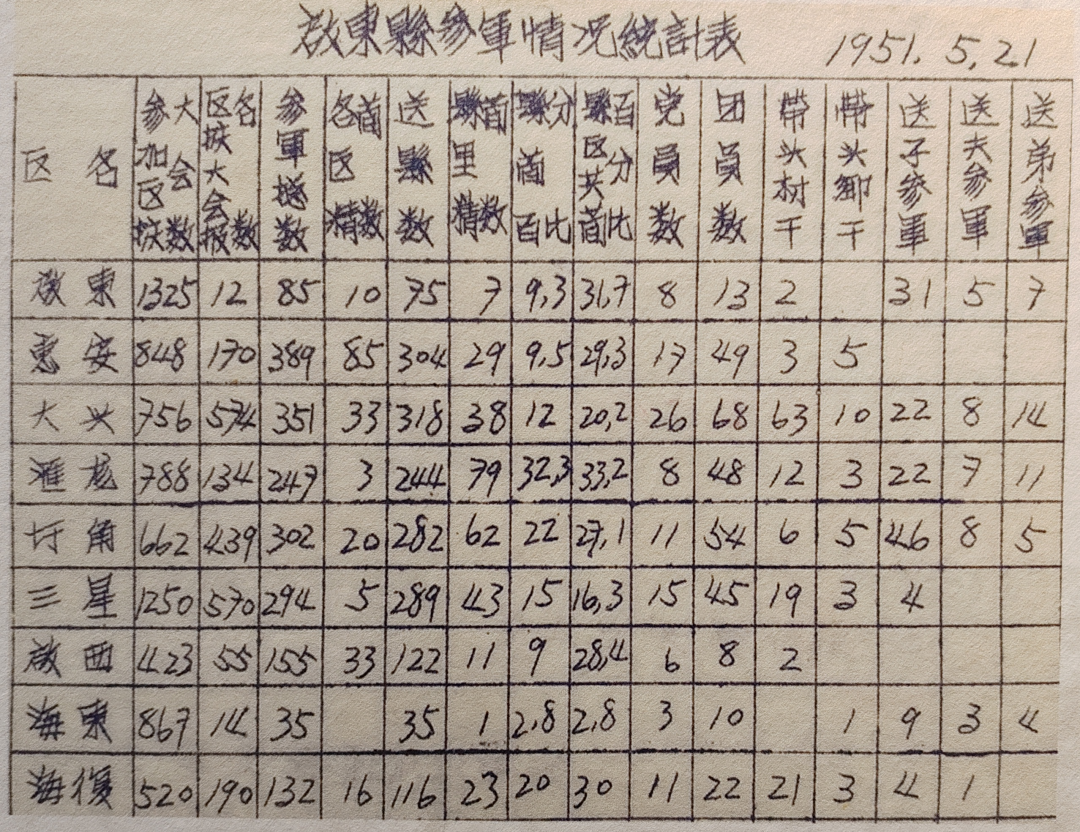 啟東縣參軍情况統計表 1951.5.21
区名 参加区扶大会数 区扶大会各报数 参軍總数 各区首精数 送縣数 縣里首精数 縣分首百比 縣区共首百分比 党員数 团員数 带头村干 带头鄉干 送子参軍 送夫参軍 送弟参軍
啟東 1325 12 85 10 75 7 9,3 31,7 8 13 2 31 5 7
惠安 848 170 389 85 304 29 9,5 29,3 17 49 3 5
大兴 756 574 351 33 318 38 12 20,2 26 68 63 10 22 8 14
滙龙 788 134 247 3 244 79 32,3 33,2 8 48 12 3 22 7 11
圩角 662 439 302 20 282 62 22 27,1 11 54 6 5 46 8 5
三星 1250 570 294 5 289 43 15 16,3 15 45 19 3 4
啟西 423 55 155 33 122 11 9 28,4 6 8 2
海東 867 14 35 35 1 2,8 2,8 3 10 1 9 3 4
海復 520 190 132 16 116 23 20 30 11 22 21 3 4 1